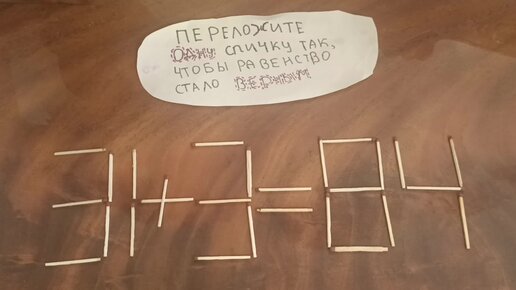 ПЕРЕЛОЖИТЕ
ОДНУ СПИЧКУ ТАК,
ЧТОБЫ РАВЕНСТВО
СТАЛО ВЕРНЫМ
31+3=84